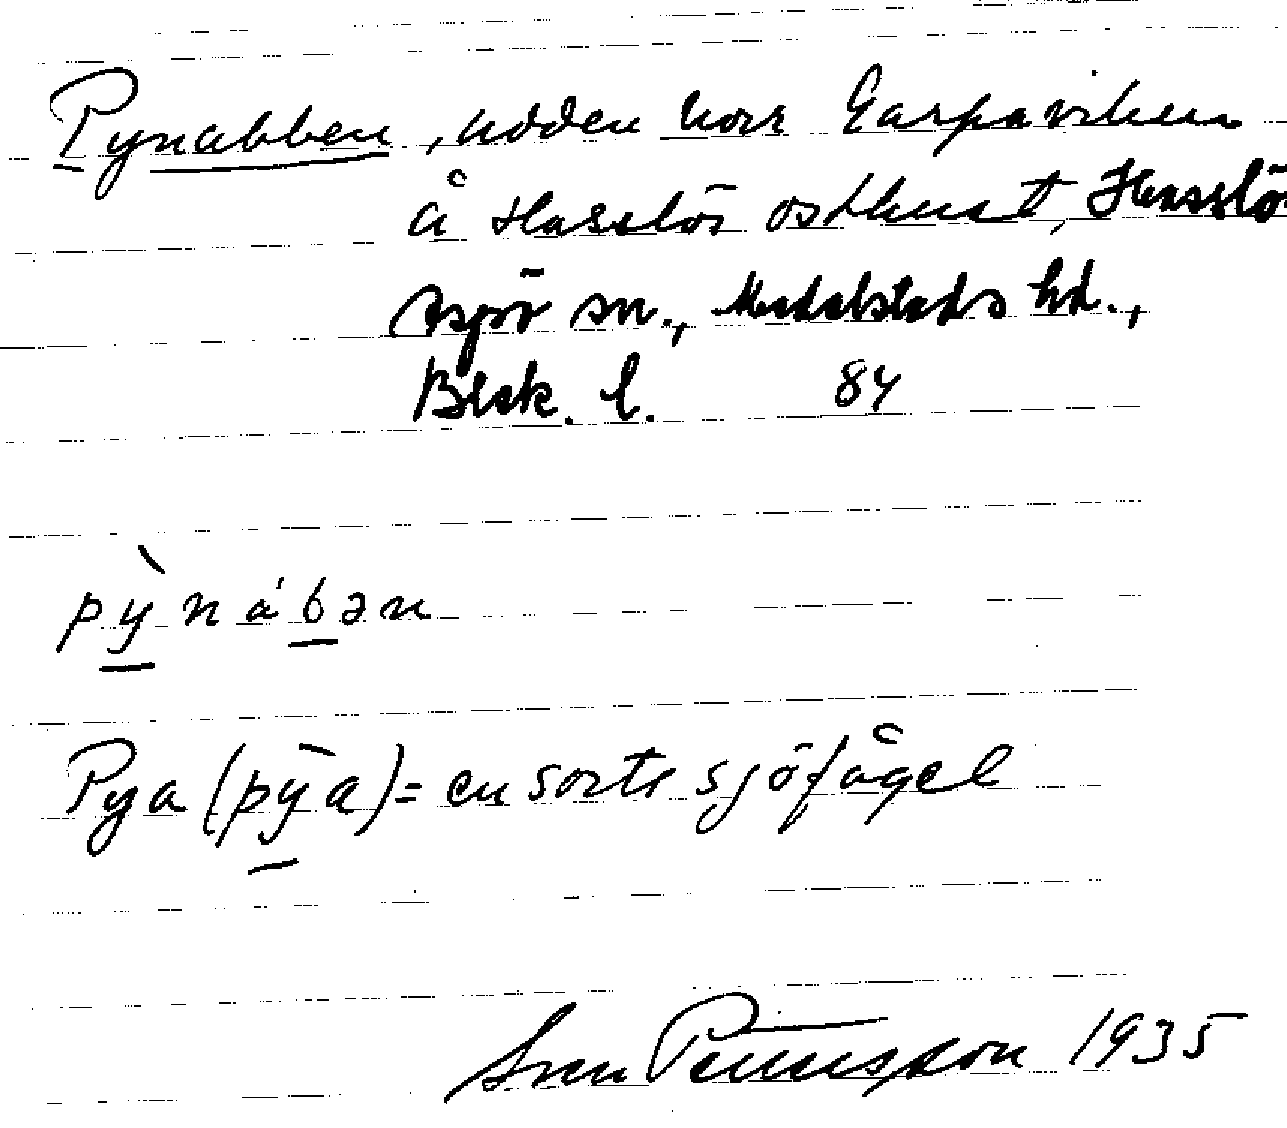 Pynabben, udden norr Garpaviken
å Hasslös ostkust, Hasslö
Aspö sn., Medelstads hd.,
Blek. l. 84
pỳnábən
Pya (pỳa) = en sorts sjöfågel
Sven
1935